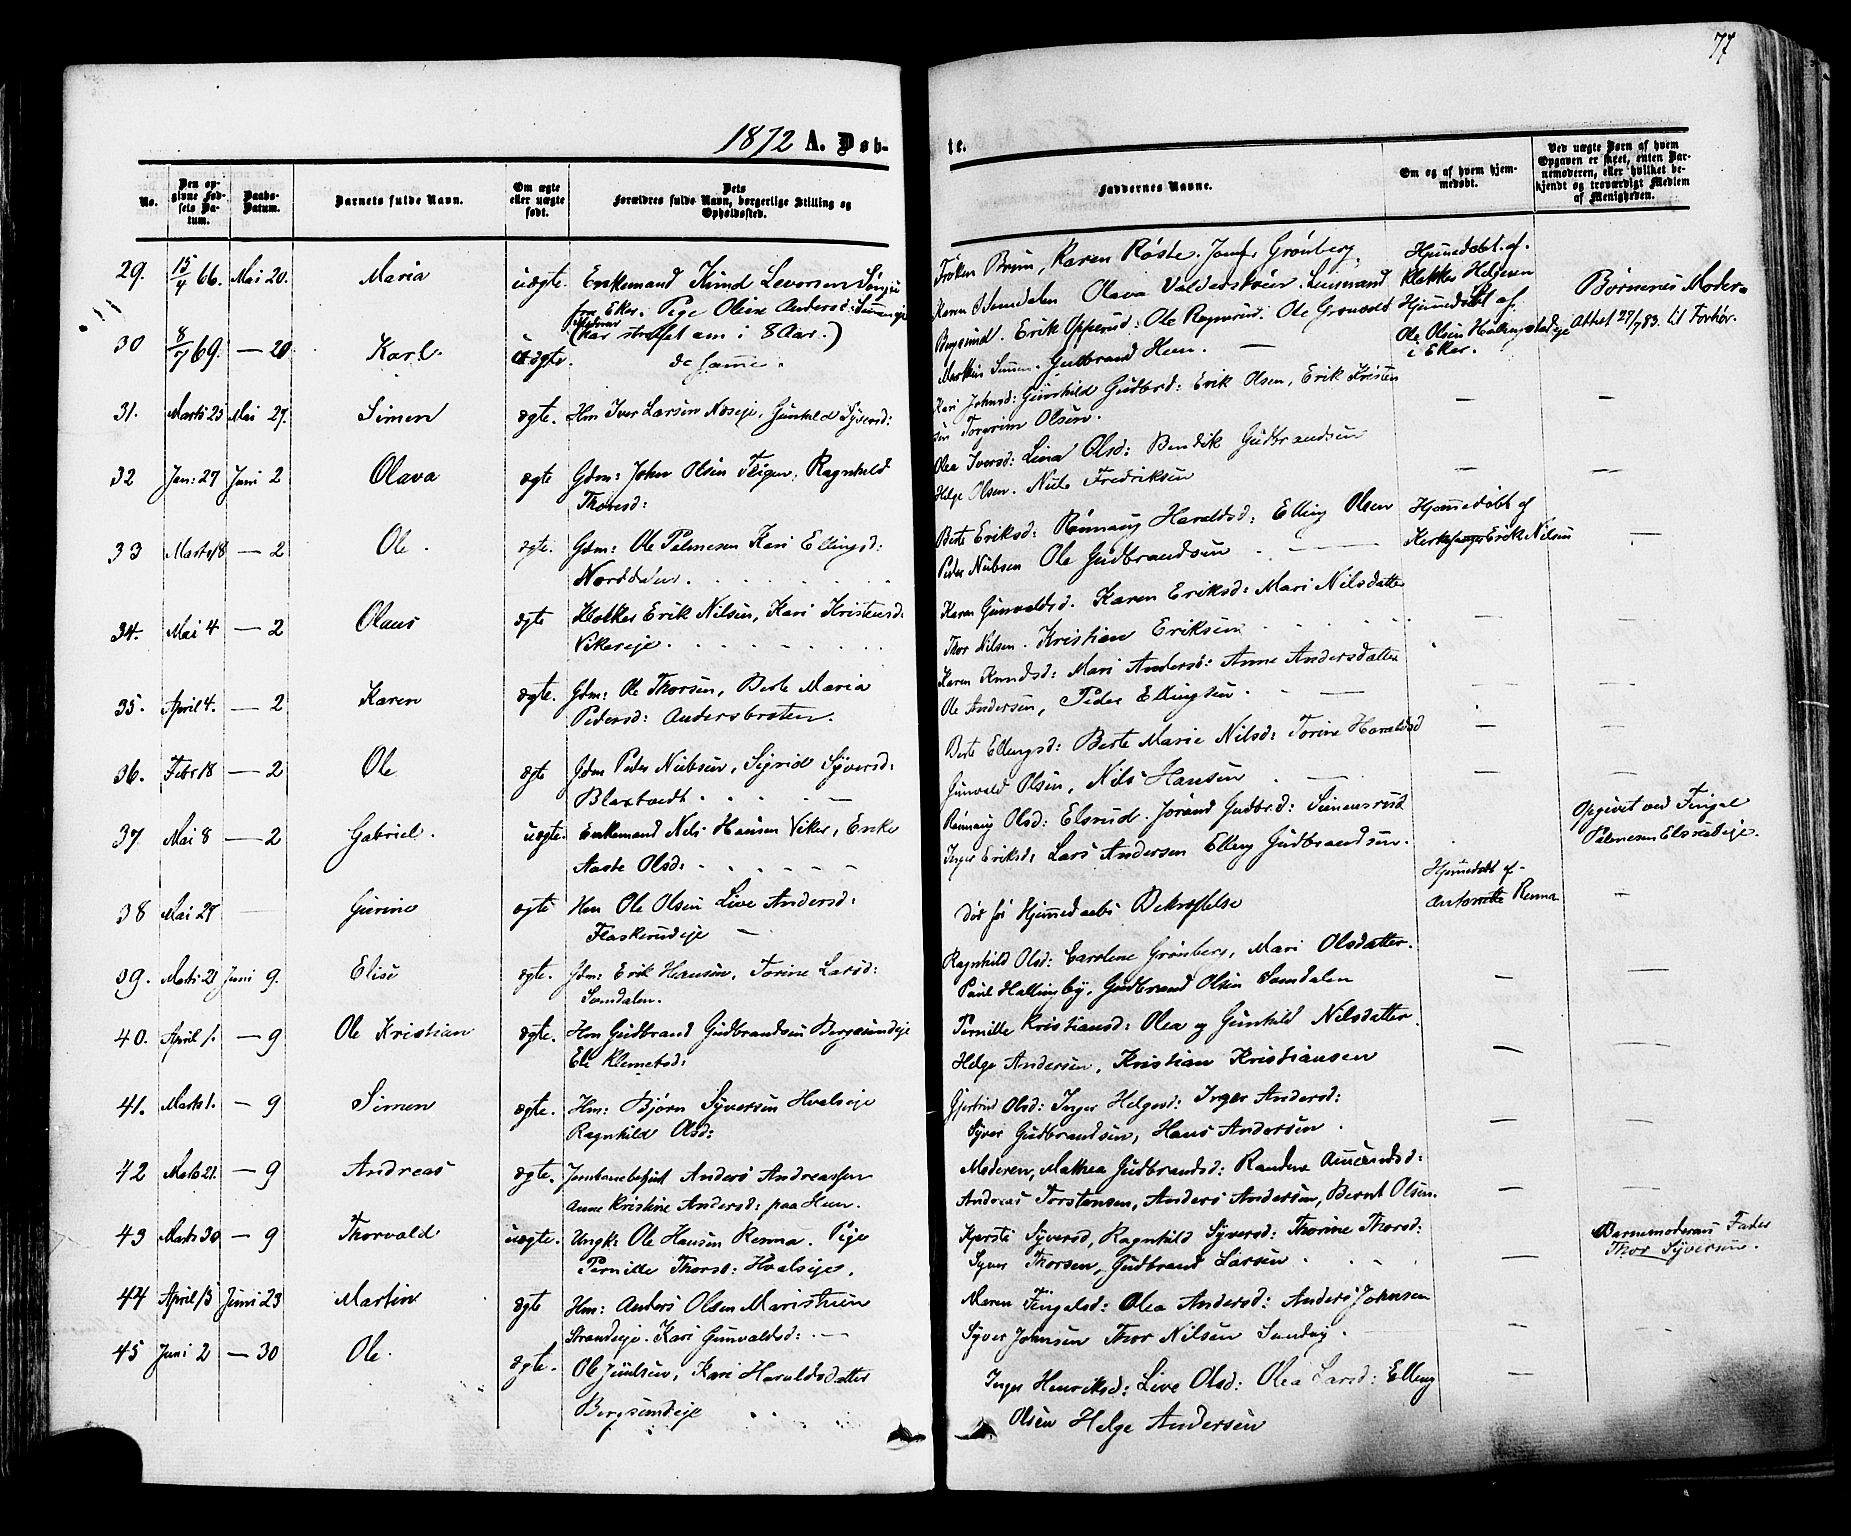 77
1872 A. Døb-
te.
No.
Den op-
givne Fød-
sels Da-
tum.
Daabs-
Datum.
Barnets fulde Navn.
Om ægte
eller uægte
født.
Dets
Forældres fulde Navn, borgerlige Stilling og
Opholdssted.
Faddernes Navne.
Om og af hvem hjem-
medøbt.
Ved uægte Børn af hvem
Opgaven er skeet, enten Bar-
nemoderen, eller hvilket be-
kjendt og troværdigt Medlem
af Menigheden.
29. 15/4 66. Mai 20. Maria uægte. Enkemand Knud Levorsen
fra Eker. Pige Oline Andersd:
(har straffet am i 8 Aar.)
Frøken Bruun, Karen Røste. Jomf. Grønberg.
Olava Valdadskvern Lensmand
Hjemmedøbt af
Klokker Helgesen
Børnenes Moder.
30 8/7 69. — 20. Karl. uægte. de samme.
Bergsund. Erik Opperud. Ole Ragnerud. Ole Grønvold
Gudbrand Heen. —
Hjemmedøbt af
Ole Olsen
i Eker.
Attest 27/7 83. til Forhør.
31. Marts 25 Mai 27. Simen ægte. Hm Iver Larsen Næseje, Gunhild Syversd:
Kari Johnsd: Gunhild Gudbrd: Erik Olsen, Erik Kristen
sen Torgrim Olsen. — —
32 Jan: 27 Juni 2 Olava ægte Gdm: John Olsen, Ragnhild
Thoresd:
Olea Iversd: Lina Olsd: Bendik Gudbrandsen
Helge Olsen. Niels Fredriksen — —
33 Marts 18 — 2 Ole. ægte. Gdm: Ole Palmesen Kari Ellingsd:
Norddalen.
Berte Eriksd: Rønnaug Haraldsd: Elling Olsen
Peder Nubsen Ole Gudbrandsen
Hjemmedøbt af
Kirkesanger Erik Nilsen —
34. Mai 4 — 2 Olaus ægte Klokker Erik Nilsen, Kari Kristensd.
Vikereje.
Karen Gunvaldsd. Karen Eriksd: Mari Nilsdatter
Thor Nilsen. Kristian Eriksen — —
35. April 4. — 2 Karen ægte. Gdm: Ole Thorsen, Berte Maria
Pedersd: Andersbraten.
Karen Knudsd: Mari Andersd: Anne Andersdatter
Ole Andersen, Peder Ellingsen. — —
36. Febr 18 — 2 Ole ægte Gdm Peder Nubsen, Sigrid Syversd:
Blaxtvedt.
Berte Ellingsd: Berte Marie Nilsd: Torine Haraldsd
Gunvald Olsen, Nils Hansen — —
37. Mai 8 — 2 Gabriel. uægte. Enkemand Nils Hansen Viker, Enke
Aaste Olsd:
Rønnaug Olsd: Elsrud. Jorand Gudbrd: Simensrud
Inger Eriksd: Lars Andersen Elling Gudbrandsen.
Opgivet ved Fingal
Palmesen Elsrudeje.
38 Mai 28 — Gurine ægte Hm Ole Olsen Live Andersd:
Flaskerudeje —
Død før Hjemmedaabs Bekræftelse
Hjemmedøbt af
Antonette Renna —
39. Marts 21 Juni 9. Elise ægte. Gdm: Erik Hansen, Torine Larsd:
Samdalen.
Ragnhild Olsd: Caroline Grønberg, Mari Olsdatter.
Paul Hallingby, Gudbrand Olsen Samdalen — —
40. April 1. — 9 Ole Kristian ægte. Hm Gudbrand Gudbrandsen Bergsundeje
Eli Klemetsd:
Pernille Kristiansd: Olea og Gunhild Nilsdatter.
Helge Andersen, Kristian Kristiansen — —
41. Marts 1. — 9 Simen ægte. Hm: Bjørn Syversen Hvalseje
Ragnhild Olsd:
Gjertrud Olsd: Inger Helgesd: Inger Andersd:
Syver Gudbrandsen, Hans Andersen. — —
42 Marts 21. — 9 Andreas ægte. Jernbanebetjent Anders Andreassen
Anne Kristine Andersd: paa Heen.
Moderen, Mathea Gudbrandsd: Randine Amundsd:
Andreas Torstensen, Anders Andersen, Bernt Olsen. — —
43 Marts 30 — 9 Thorvald uægte. Ungk: Ole Hansen Renna. Pige
Pernille Thorsd: Hvalseje.
Kjersti Syversd, Ragnhild Syversd: Thorine Thorsd:
Syver Thorsen, Gudbrand Larsen —
Barnemoderens Fader
Thor Syversen.
44 April 13 Juni 23 Martin ægte Hm: Anders Olsen Maristuen
Strandeje. Kari Gunvaldsd: —
Maren Fingalsd: Olea Andersd: Anders Johnsen
Syver Johnsen Thor Nilsen Sandvig. — —
45 Juni 2 — 30 Ole. ægte. Ole Juulsen, Kari Haraldsdatter
Bergsundeje
Inger Henriksd: Live Olsd: Olea Larsd: Elling
Olsen Helge Andersen — —